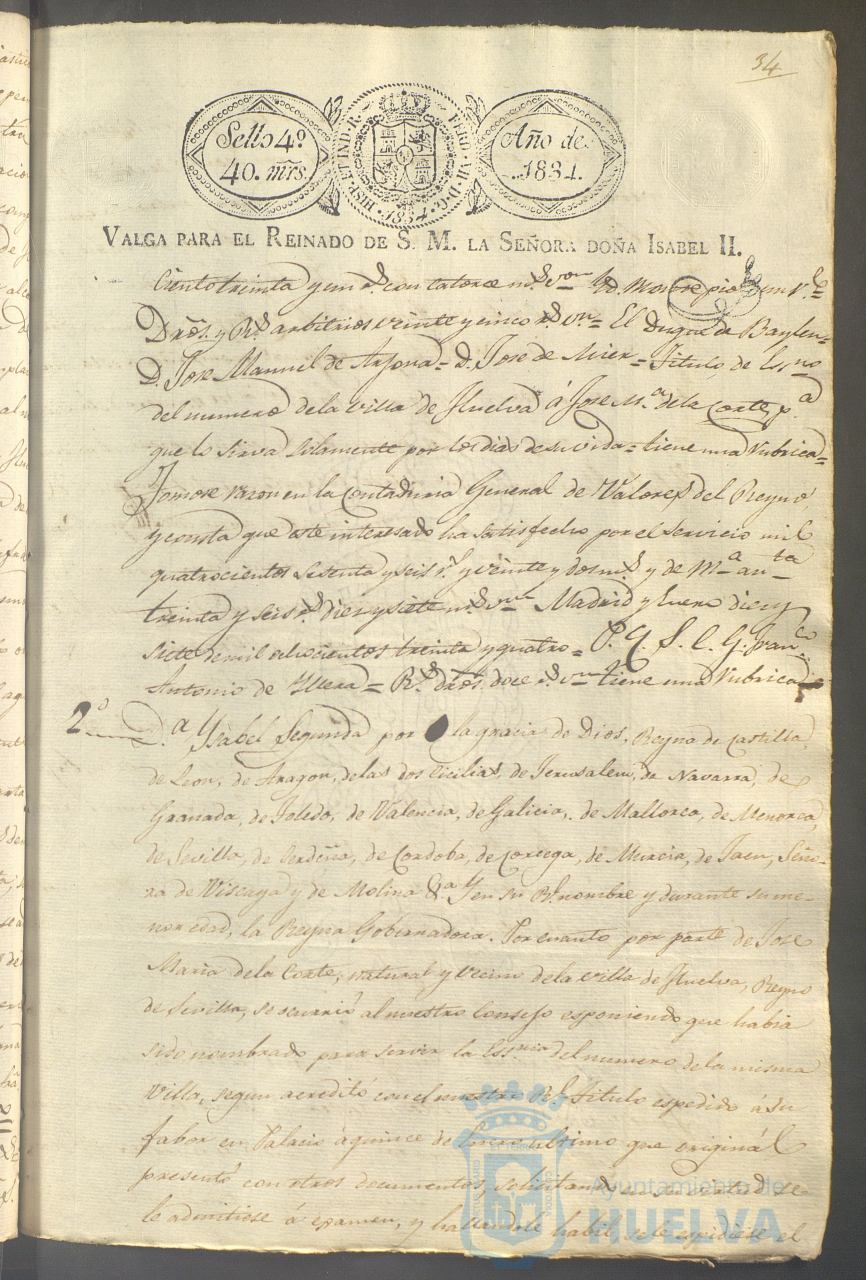 34
Sello 4º
40. mrs.
HISP. ET IND. R. FERD. VII. D. G. 1834.
Año de
1834.
VALGA PARA EL REINADO DE S. M. LA SEÑORA DOÑA ISABEL II.
Ciento treinta y un rs. con catorce ms. von
Dros. y Rs. arbitrios veinte y cinco rs. vn = El Duque de Baylen =
D. Jose Manuel de Arjona = D. Jose de Mier = Titulo de Esno
del numero de la villa de Huelva á Jose Ma. de la Corte, pa
que lo sirva solamente por los dias de su vida = tiene una rubrica =
Tomose razon en la Contaduria General de Valores del Reyno,
y consta que este interesado ha satisfecho por el servicio mil
quatrocientos setenta y seis rs. y veinte y dos ms. y de Ma anta
treinta y seis rs. diez y siete ms. von Madrid y Enero diez y
siete de mil ochocientos treinta y quatro = P. Y. S. C. G. Franco
Antonio de = Rs. dros. doce rs. vn tiene una rubrica =
2º Da. Ysabel Segunda por la gracia de Dios, Reyna de Castilla,
de Leon, de Aragon, de las dos Cicilias, de Jerusalem, de Navarra, de
Granada, de Toledo, de Valencia, de Galicia, de Mallorca, de Menorca,
de Sevilla, de Cerdeña, de Cordoba, de Corcega, de Murcia, de Jaen, Seño-
ra de Viscaya y de Molina &a. Y en su Rl. nombre y durante su me-
nor edad, la Reyna Gobernadora. Por cuanto por parte de Jose
Maria de la Corte, natural y vecino de la villa de Huelva, Reyno
de Sevilla, se ocurrió al nuestro Consejo esponiendo que habia
sido nombrado para servir la Essnia del numero de la misma
Villa, segun acreditó con el nuestro Rl. Titulo espedido á su
fabor en Palacio á quince de Enero ultimo que original
presentó con otros documentos, solicitando que en su virtud se
le admitiese á examen, y hallandole habil, se le espidiese el
Ayuntamiento de
HUELVA